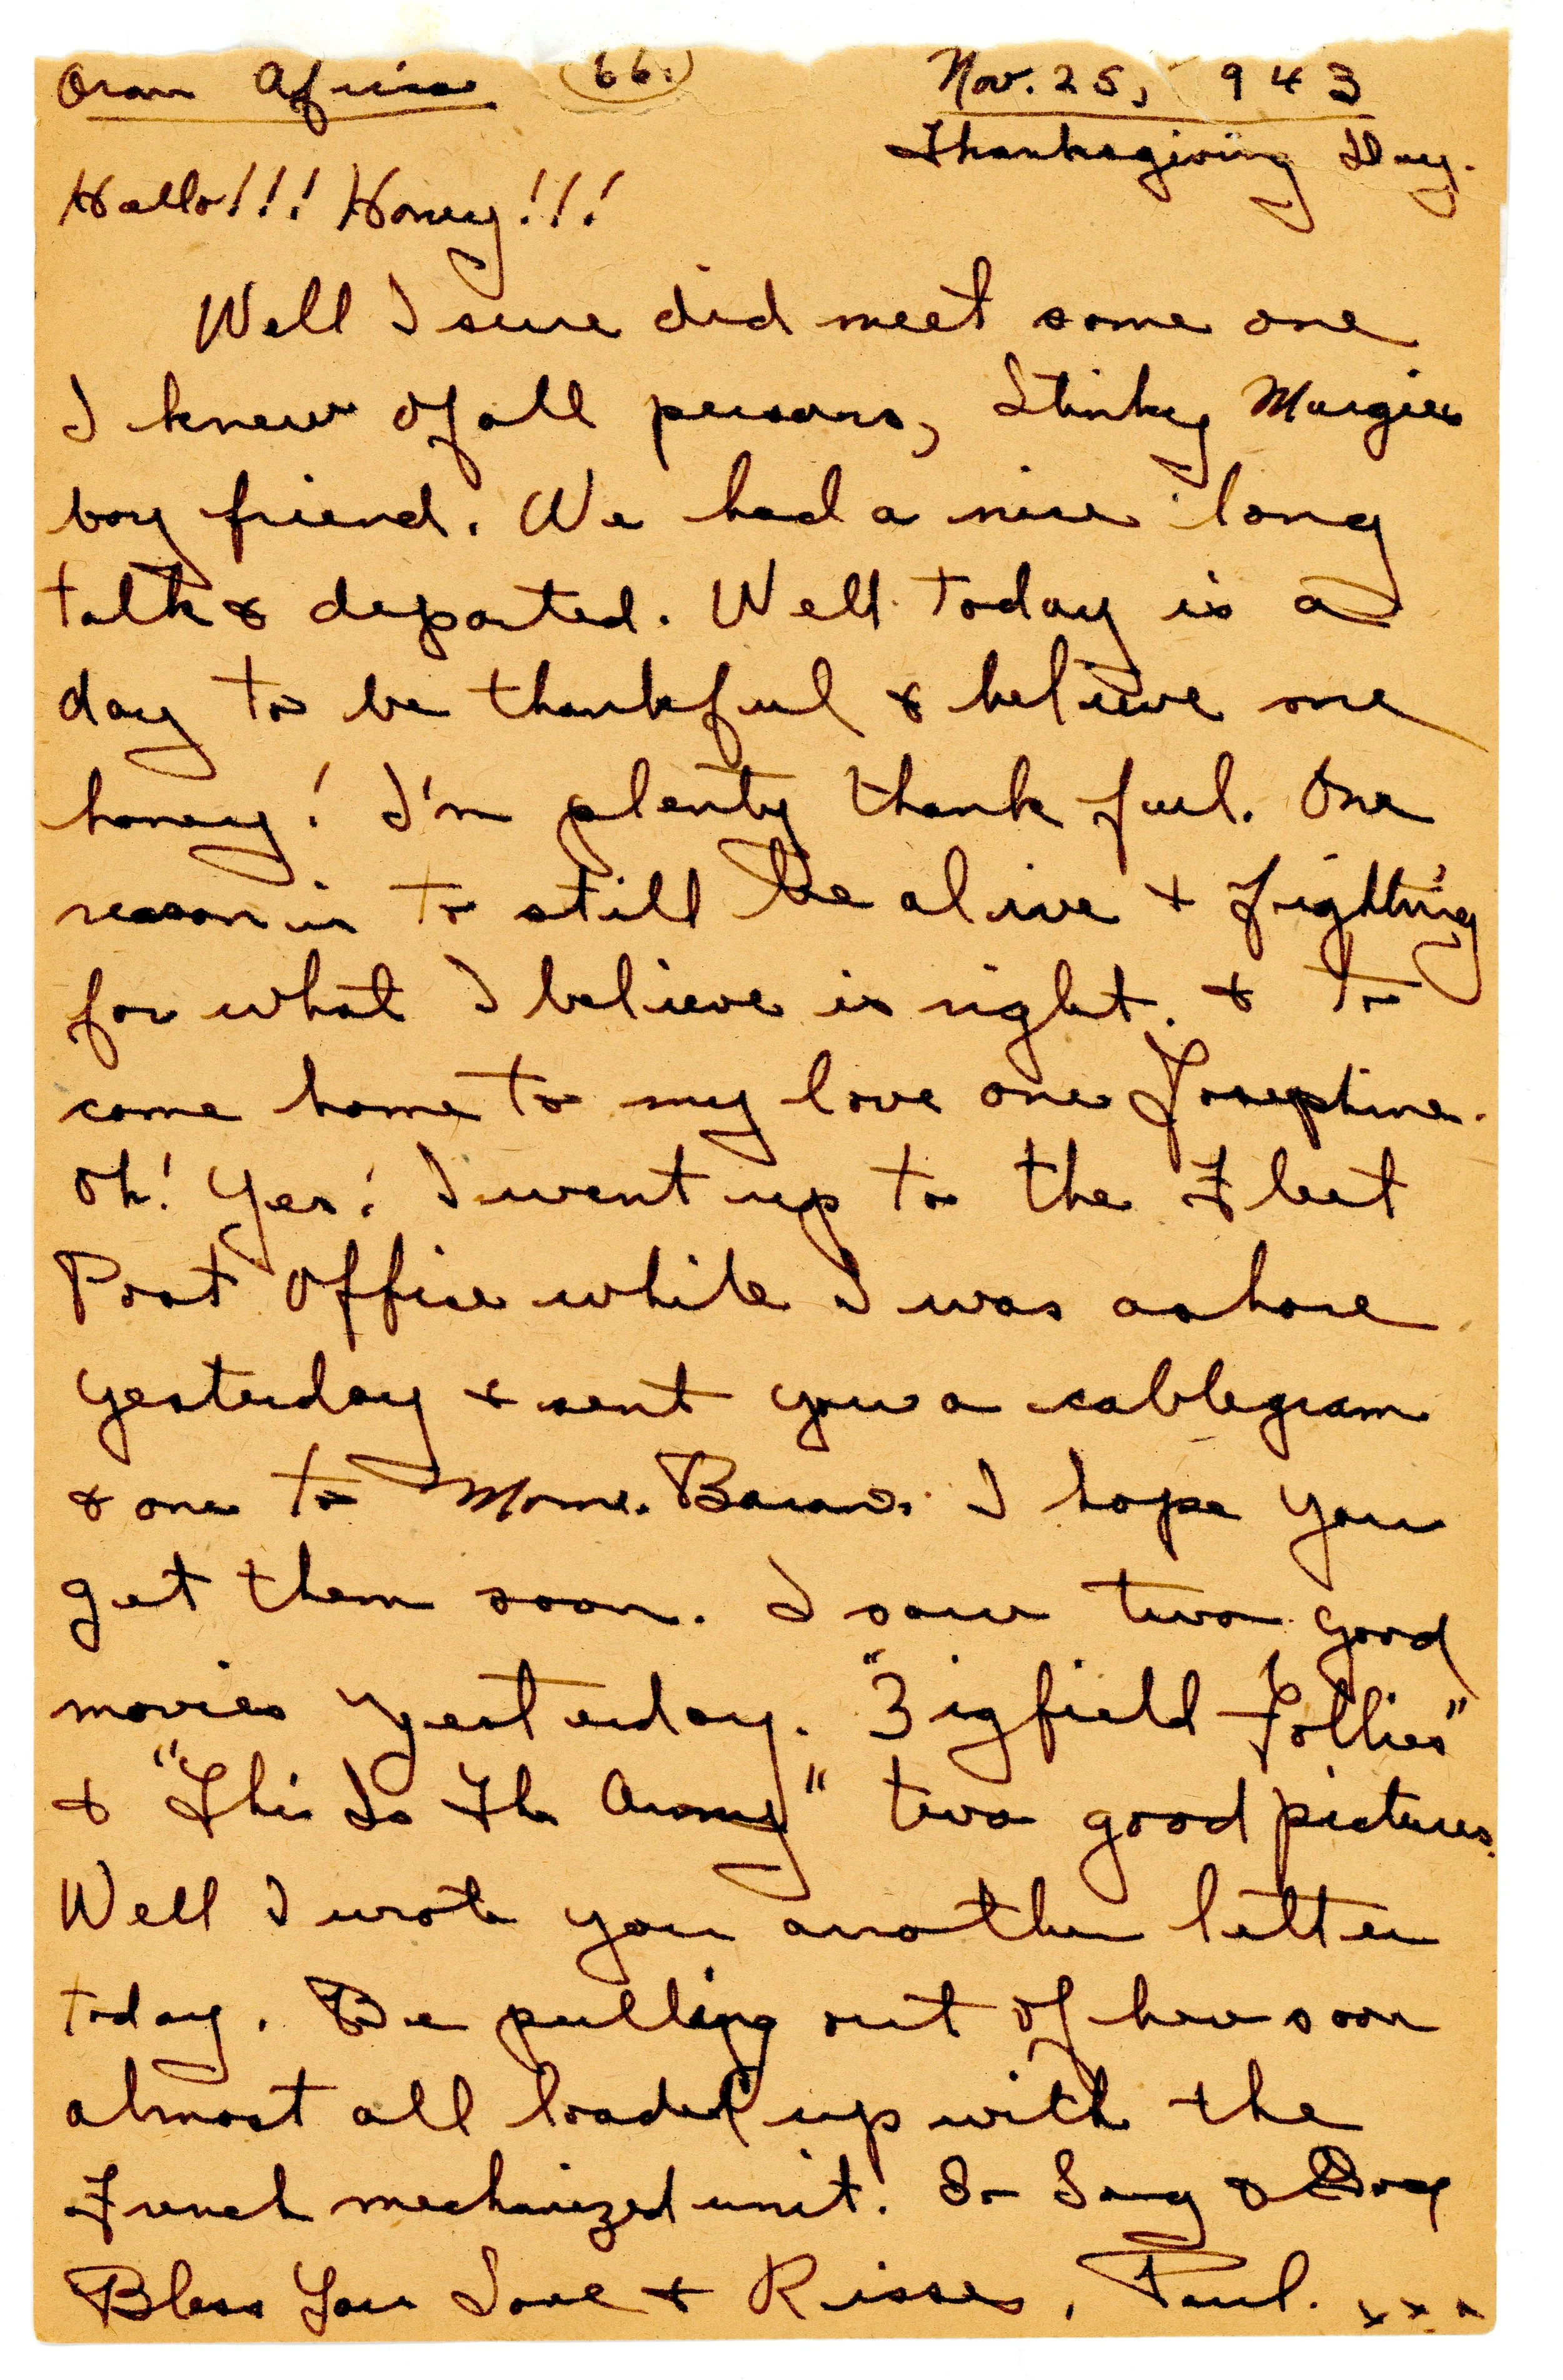 Oran Africa 66. Nov. 25, 943
Thanksgiving Day.
Hallo!!! Honey!!!
Well I sure did meet some one
I knew of all persons, Stinky Margies
boy friend. We had a nice long
talk & departed. Well today is a
day to be thankful & believe me
honey! I'm plenty thank ful. One
reason is to still be alive & fighting
for what I believe is right. & to
come home to my love one Josephine.
Oh! Yes! I went up to the Fleet
Post Office while I was ashore
yesterday & sent you a cablegram
& one to Mom. I hope you
get them soon. I saw two good
movies yesterday. "Zigfield Follies"
& "This Is The Army" two good pictures.
Well I wrote you another letter
today. Be pulling out of here soon
almost all loaded up with the
French mechanized unit. So Long & God
Bless You Love & Kisses, Paul. xxx